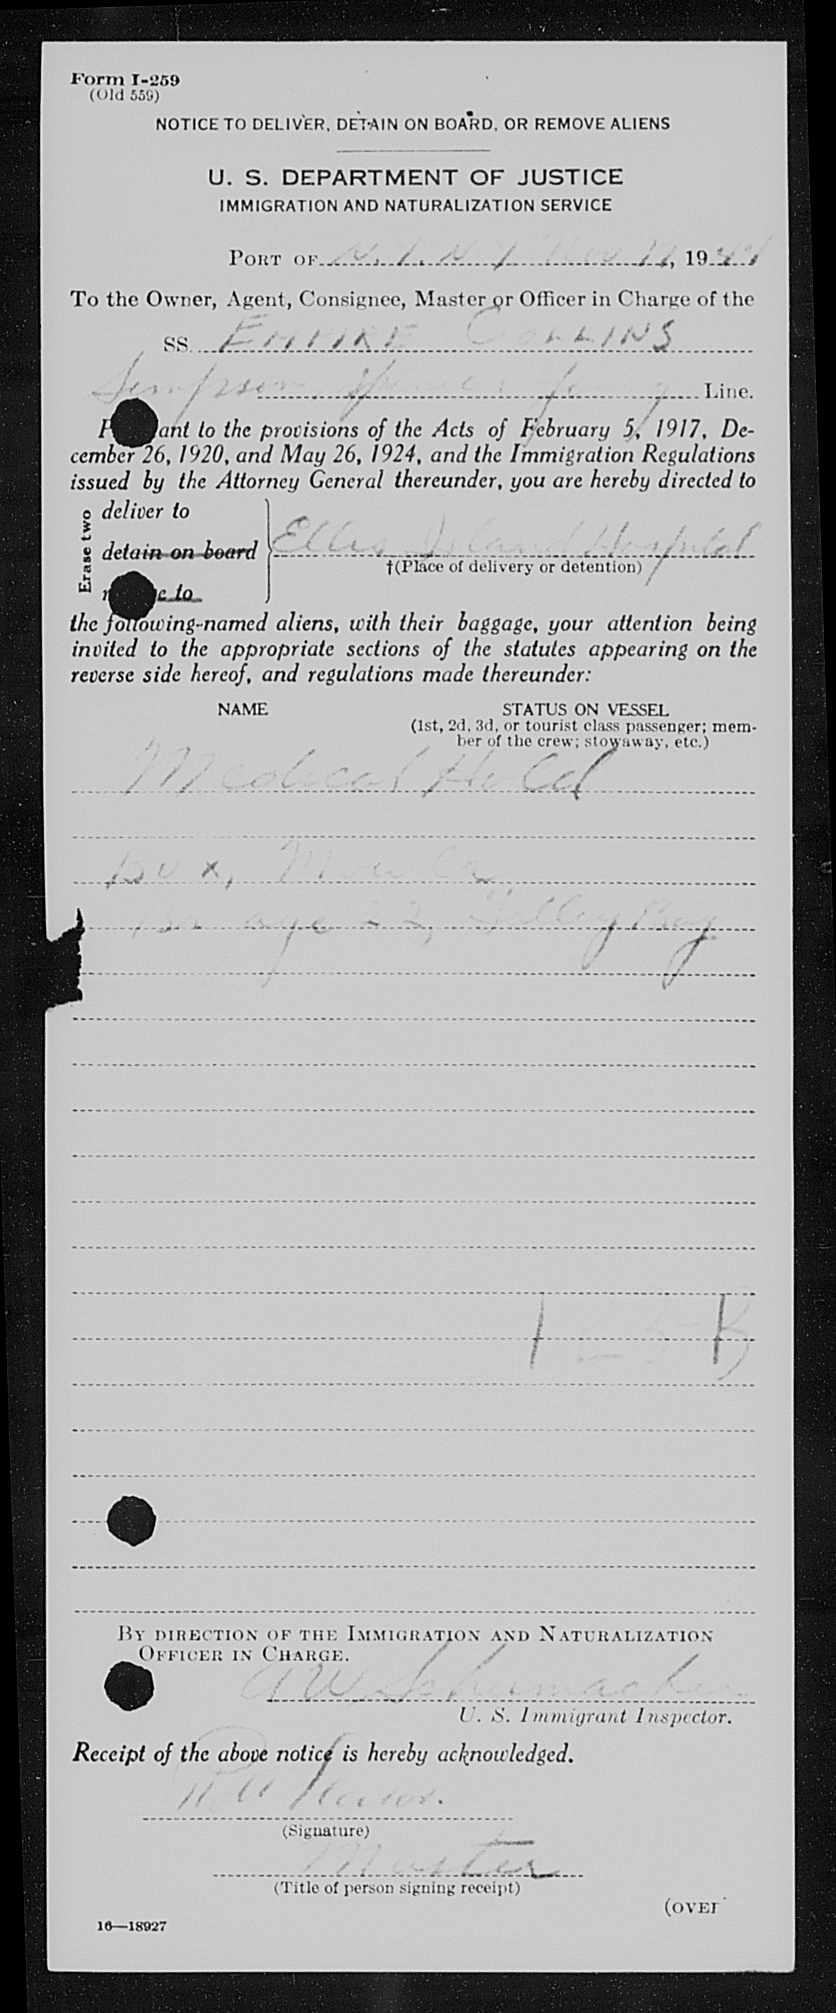 Form I-259
(Old 559)
NOTICE TO DELIVER, DETAIN ON BOARD, OR REMOVE ALIENS
U. S. DEPARTMENT OF JUSTICE
IMMIGRATION AND NATURALIZATION SERVICE
PORT OF N. Y. N. Y. Nov 17, 1944
To the Owner, Agent, Consignee, Master or Officer in Charge of the
SS. EMPIRE COLLINS
Simpson, Spence & Young Line.
ant to the provisions of the Acts of February 5, 1917, De-
cember 26, 1920, and May 26, 1924, and the Immigration Regulations
issued by the Attorney General thereunder, you are hereby directed to
Erase two
deliver to
detain on board
to
Ellis Island Hospital
†(Place of delivery or detention)
the following-named aliens, with their baggage, your attention being
invited to the appropriate sections of the statutes appearing on the
reverse side hereof, and regulations made thereunder:
NAME STATUS ON VESSEL
(1st, 2d, 3d, or tourist class passenger; mem-
ber of the crew; stowaway, etc.)
Medical Hold
Bux,
Br age 22, Galley Boy
By direction of the Immigration and Naturalization
Officer in Charge.
A W Schumacher
U. S. Immigrant Inspector.
Receipt of the above notice is hereby acknowledged.
(Signature)
Master
(Title of person signing receipt)
(OVER
16—18927